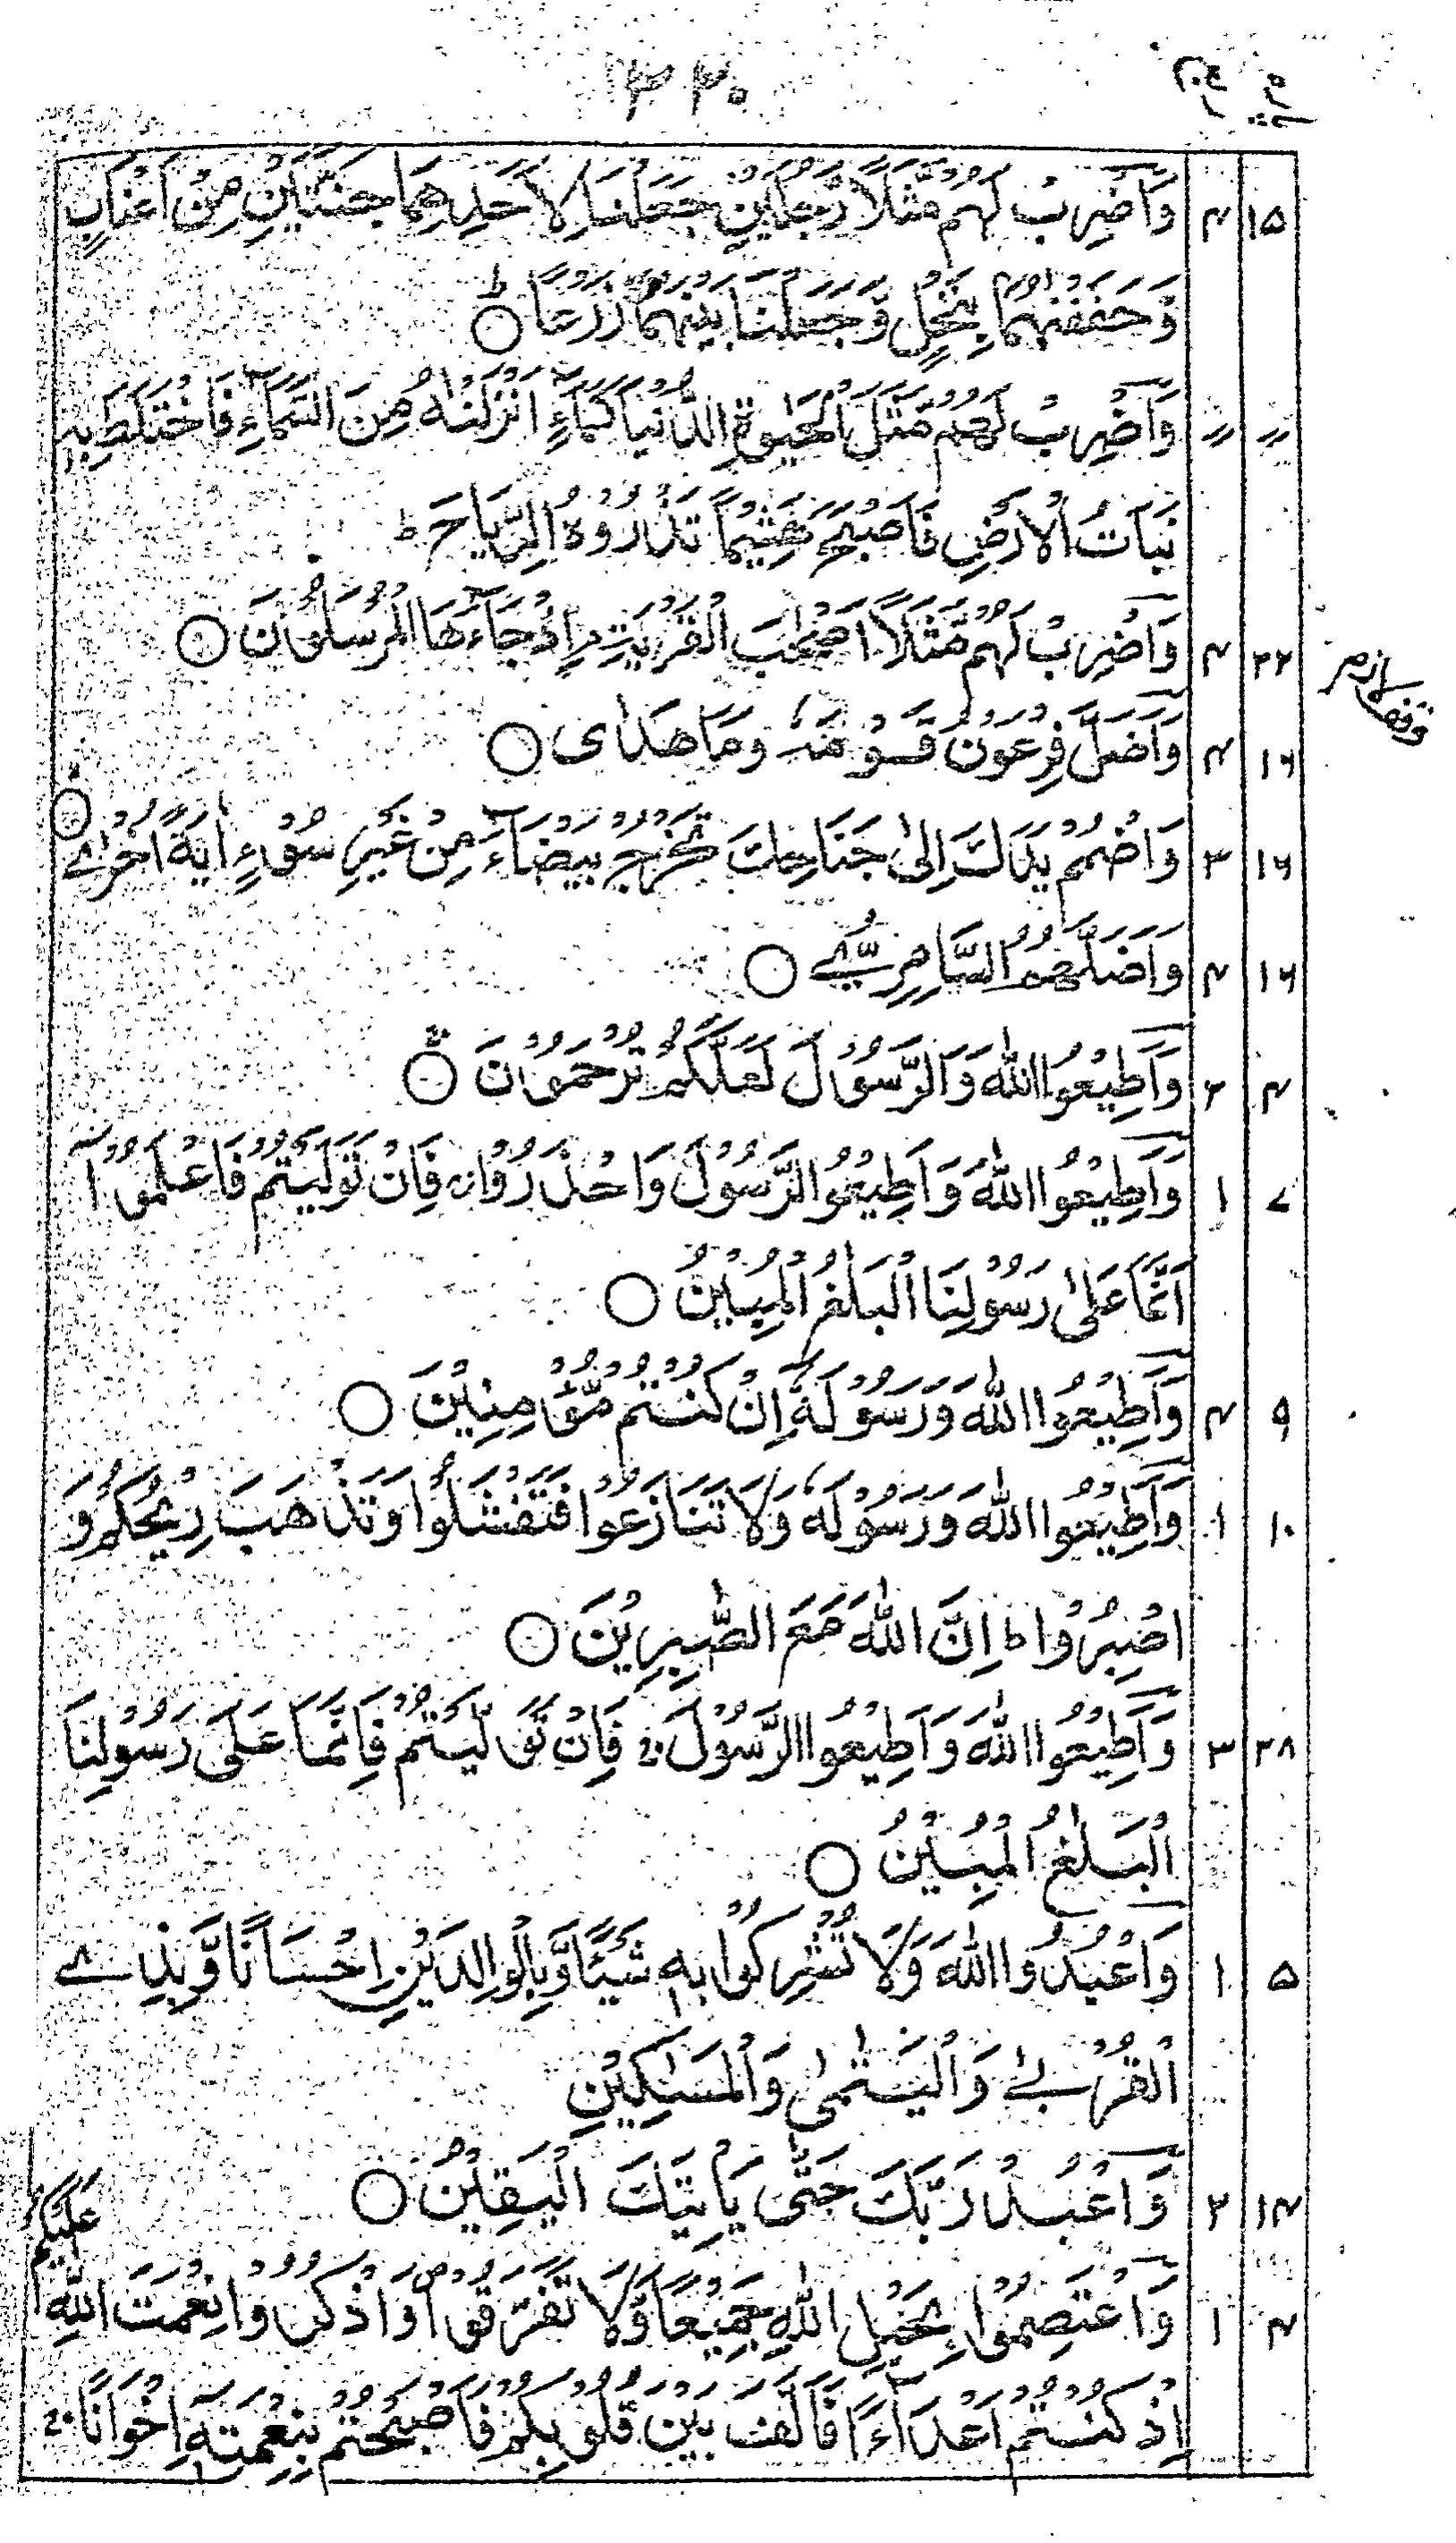 ۴۴۰
۱۵ ۴ وَاضْرِبْ لَهُمْ مَّثَلًا رَّجُلَيْنِ جَعَلْنَا لِاَحَدِهِمَا جَنَّتَيْنِ مِنْ اَعْنَابٍ
وَّحَفَفْنٰهُمَا بِنَخْلٍ وَّجَعَلْنَا بَيْنَهُمَا زَرْعًا ○ ط
〃 〃 وَاضْرِبْ لَهُمْ مَّثَلَ الْحَيٰوةِ الدُّنْيَا كَمَآءٍ اَنْزَلْنٰهُ مِنَ السَّمَآءِ فَاخْتَلَطَ بِهٖ
نَبَاتُ الْاَرْضِ فَاَصْبَحَ هَشِيْمًا تَذْرُوْهُ الرِّيَاحُ ط
۲۲ ۴ وَاضْرِبْ لَهُمْ مَّثَلًا اَصْحٰبَ الْقَرْيَةِ م اِذْ جَآءَهَا الْمُرْسَلُوْنَ ○
وقف لازم
۱۶ ۴ وَاَضَلَّ فِرْعَوْنُ قَوْمَهٗ وَمَا هَدٰى ○
۱۶ ۳ وَاضْمُمْ يَدَكَ اِلٰى جَنَاحِكَ تَخْرُجْ بَيْضَآءَ مِنْ غَيْرِ سُوْٓءٍ اٰيَةً اُخْرٰى ○
۱۶ ۴ وَاَضَلَّهُمُ السَّامِرِيُّ ○
۴ ۲ وَاَطِيْعُوا اللّٰهَ وَالرَّسُوْلَ لَعَلَّكُمْ تُرْحَمُوْنَ ○
۷ ۱ وَاَطِيْعُوا اللّٰهَ وَاَطِيْعُوا الرَّسُوْلَ وَاحْذَرُوْا ۚ فَاِنْ تَوَلَّيْتُمْ فَاعْلَمُوْٓا
اَنَّمَا عَلٰى رَسُوْلِنَا الْبَلٰغُ الْمُبِيْنُ ○
۹ ۴ وَاَطِيْعُوا اللّٰهَ وَرَسُوْلَهٗٓ اِنْ كُنْتُمْ مُّؤْمِنِيْنَ ○
۱۰ ۱ وَاَطِيْعُوا اللّٰهَ وَرَسُوْلَهٗ وَلَا تَنَازَعُوْا فَتَفْشَلُوْا وَتَذْهَبَ رِيْحُكُمْ وَ
اصْبِرُوْا ط اِنَّ اللّٰهَ مَعَ الصّٰبِرِيْنَ ○
۲۸ ۳ وَاَطِيْعُوا اللّٰهَ وَاَطِيْعُوا الرَّسُوْلَ ۚ فَاِنْ تَوَلَّيْتُمْ فَاِنَّمَا عَلٰى رَسُوْلِنَا
الْبَلٰغُ الْمُبِيْنُ ○
۵ ۱ وَاعْبُدُوا اللّٰهَ وَلَا تُشْرِكُوْا بِهٖ شَيْئًا وَّبِالْوَالِدَيْنِ اِحْسَانًا وَّبِذِى
الْقُرْبٰى وَالْيَتٰمٰى وَالْمَسٰكِيْنِ
۱۴ ۲ وَاعْبُدْ رَبَّكَ حَتّٰى يَاْتِيَكَ الْيَقِيْنُ ○
۴ ۱ وَاعْتَصِمُوْا بِحَبْلِ اللّٰهِ جَمِيْعًا وَّلَا تَفَرَّقُوْا ص وَاذْكُرُوْا نِعْمَتَ اللّٰهِ عَلَيْكُمْ
اِذْ كُنْتُمْ اَعْدَآءً فَاَلَّفَ بَيْنَ قُلُوْبِكُمْ فَاَصْبَحْتُمْ بِنِعْمَتِهٖٓ اِخْوَانًا ۚ